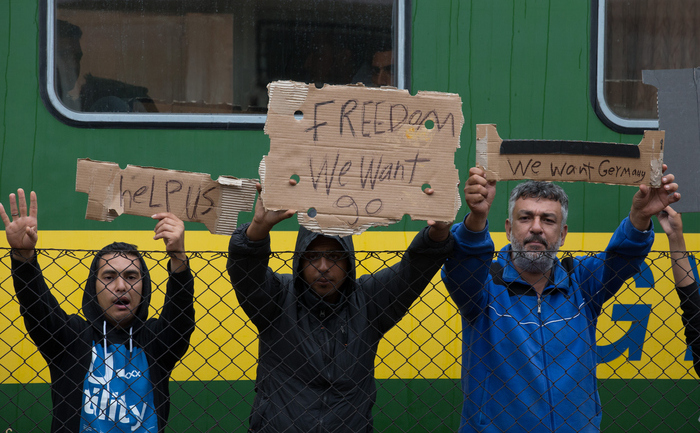 help us
FREEDOM
We Want
go
We want Germany
utility
G